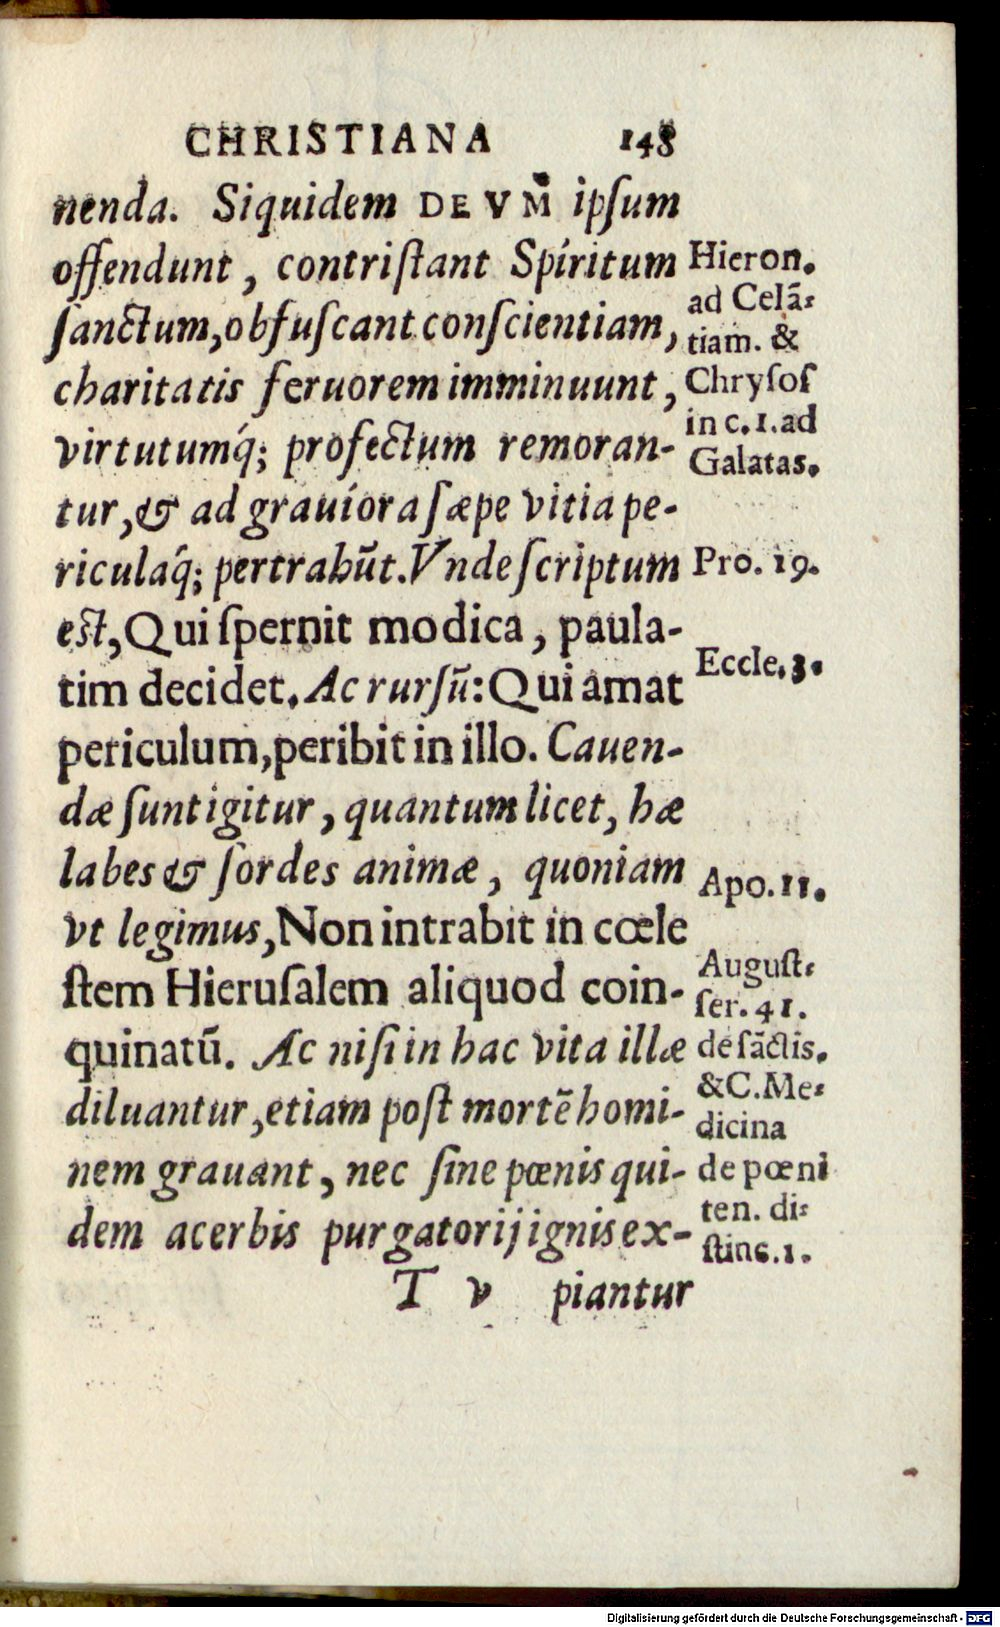 CHRISTIANA 148
nenda. Siquidem DEVM ipſum
offendunt, contriſtant Spiritum
ſanctum, obfuſcant conſcientiam,
charitatis feruorem imminuunt,
virtutumq́; profectum remoran-
tur, & ad grauiora ſæpe vitia pe-
riculaq́; pertrahūt. Vnde ſcriptum
eſt, Qui ſpernit modica, paula-
tim decidet. Ac rurſū: Qui amat
periculum, peribit in illo. Cauen-
dæ ſunt igitur, quantum licet, hæ
labes & ſordes animæ, quoniam
vt legimus, Non intrabit in cœle
ſtem Hieruſalem aliquod coin-
quinatū. Ac niſi in hac vita illæ
diluantur, etiam poſt mortē homi-
nem grauant, nec ſine pœnis qui-
dem acerbis purgatorij ignis ex-
T v piantur
Hieron.
ad Celā-
tiam. &
Chryſoſ
in c. 1. ad
Galatas.
Pro. 19.
Eccle. 3.
Apo. 11.
Auguſt-
ſer. 41.
de ſāctis.
& C. Me-
dicina
de pœni
ten. di-
ſtinc. 1.
Digitalisierung gefördert durch die Deutsche Forschungsgemeinschaft - DFG